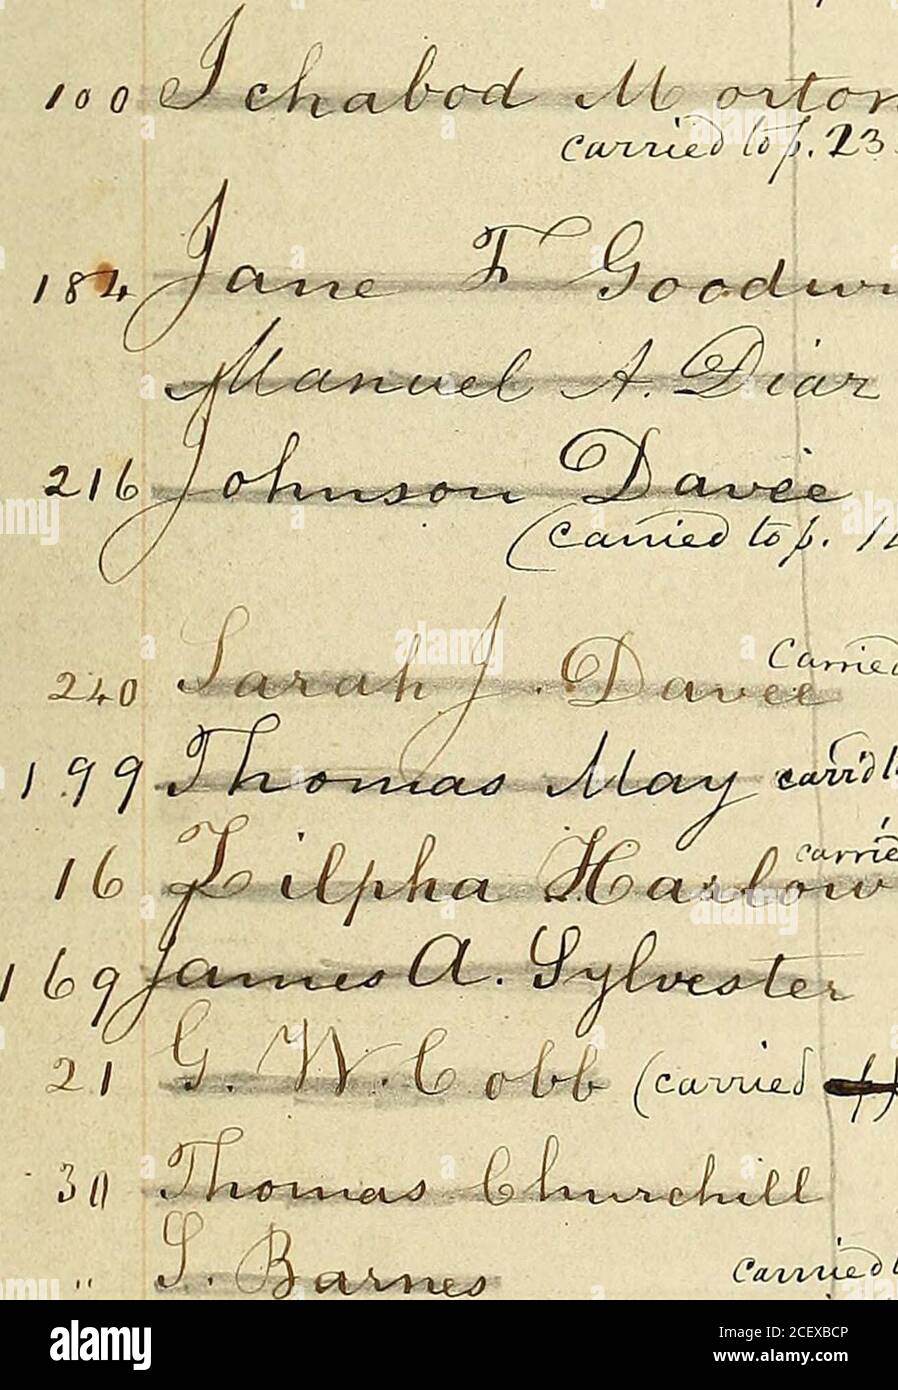 100 Ichabod Morton
carried to p. 23
184 Jane F Goodwi
Manuel A. Diaz
216 Johnson Davee
(carried to p. 1
240 Sarah J. Davee Carried
199 Thomas May carr'd t
16 Zilpha Harlow carrie
169 James A. Sylvester
21 G. W. Cobb (carried
30 Thomas Churchill
" S. Barnes carried t
alamy
Image ID: 2CEXBCP
www.alamy.com